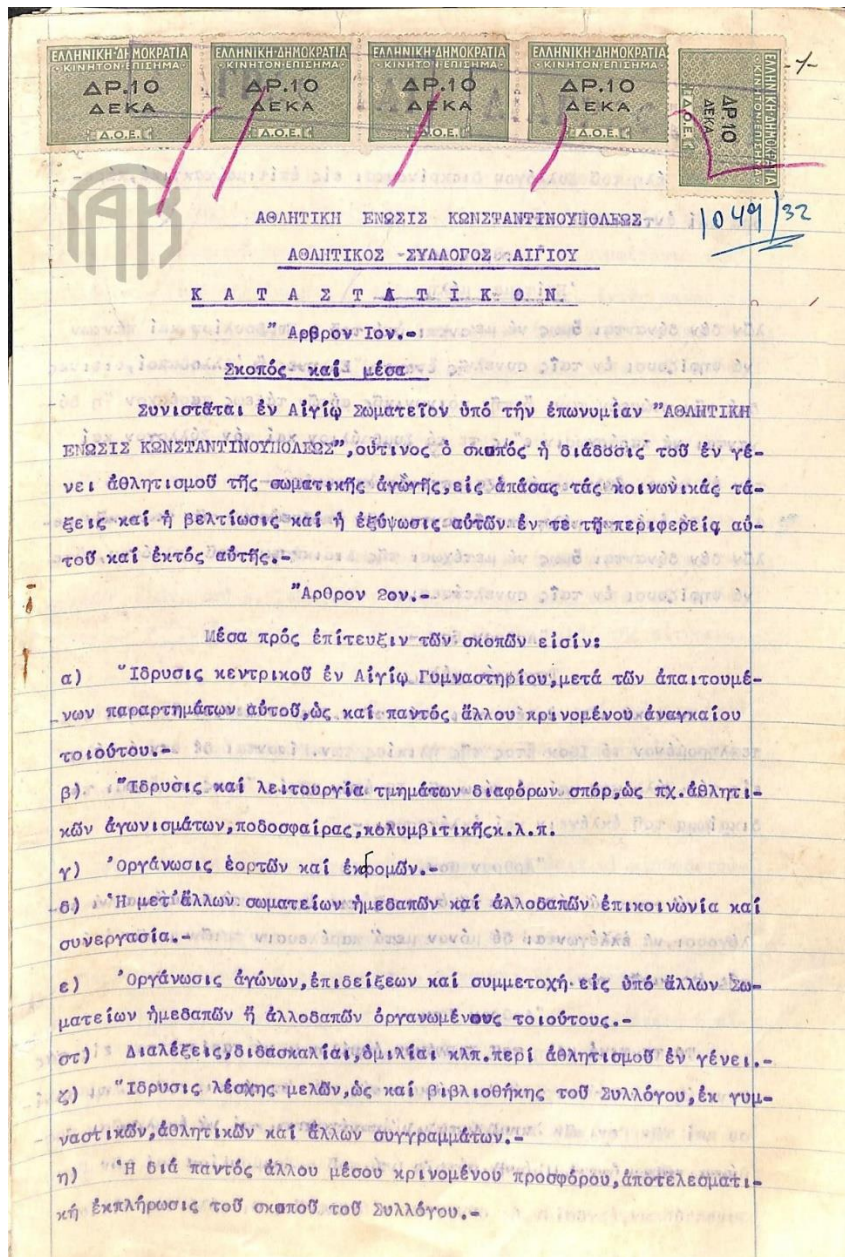 ΕΛΛΗΝΙΚΗ ΔΗΜΟΚΡΑΤΙΑ ΕΛΛΗΝΙΚΗ ΔΗΜΟΚΡΑΤΙΑ ΕΛΛΗΝΙΚΗ ΔΗΜΟΚΡΑΤΙΑ ΕΛΛΗΝΙΚΗ ΔΗΜΟΚΡΑΤΙΑ ΕΛΛΗΝΙΚΗ ΔΗΜΟΚΡΑΤΙΑ
ΚΙΝΗΤΟΝ ΕΠΙΣΗΜΑ ΚΙΝΗΤΟΝ ΕΠΙΣΗΜΑ ΚΙΝΗΤΟΝ ΕΠΙΣΗΜΑ ΚΙΝΗΤΟΝ ΕΠΙΣΗΜΑ ΚΙΝΗΤΟΝ ΕΠΙΣΗΜΑ
ΔΡ.10 ΔΡ.10 ΔΡ.10 ΔΡ.10 ΔΡ.10
ΔΕΚΑ ΔΕΚΑ ΔΕΚΑ ΔΕΚΑ ΔΕΚΑ
Δ.Ο.Ε. Δ.Ο.Ε. Δ.Ο.Ε. Δ.Ο.Ε. Δ.Ο.Ε.
-1-
ΓΑΚ
1049/32
ΑΘΛΗΤΙΚΗ ΕΝΩΣΙΣ ΚΩΝΣΤΑΝΤΙΝΟΥΠΟΛΕΩΣ
ΑΘΛΗΤΙΚΟΣ ΣΥΛΛΟΓΟΣ ΑΙΓΙΟΥ
Κ Α Τ Α Σ Τ Α Τ Ι Κ Ο Ν.
"Αρθρον Ιον.-
Σκοπός καί μέσα
Συνιστᾶται ἐν Αἰγίῳ Σωματεῖον ὑπό τήν ἐπωνυμίαν "ΑΘΛΗΤΙΚΗ
ΕΝΩΣΙΣ ΚΩΝΣΤΑΝΤΙΝΟΥΠΟΛΕΩΣ",οὗτινος ὁ σκοπός ἡ διάδοσις τοῦ ἐν γέ-
νει ἀθλητισμοῦ τῆς σωματικῆς ἀγωγῆς,εἰς ἁπάσας τάς κοινωνικάς τά-
ξεις καί ἡ βελτίωσις καί ἡ ἐξύψωσις αὐτῶν ἐν τε τῇ περιφερείᾳ αὐ-
τοῦ καί ἐκτός αὐτῆς.-
"Αρθρον 2ον.-
Μέσα πρός ἐπίτευξιν τῶν σκοπῶν εἰσίν:
α) "Ιδρυσις κεντρικοῦ ἐν Αἰγίῳ Γυμναστηρίου,μετά τῶν ἀπαιτουμέ-
νων παραρτημάτων αὐτοῦ,ὡς καί παντός ἄλλου κρινομένου ἀναγκαίου
τοιούτου.-
β) "Ιδρυσις καί λειτουργία τμημάτων διαφόρων σπόρ,ὡς πχ.ἀθλητι-
κῶν ἀγωνισμάτων,ποδοσφαίρας,κολυμβιτικῆςκ.λ.π.
γ) 'Οργάνωσις ἑορτῶν καί ἐκδρομῶν.-
δ) 'Η μετ'ἄλλων σωματείων ἡμεδαπῶν καί ἀλλοδαπῶν ἐπικοινωνία καί
συνεργασία.-
ε) 'Οργάνωσις ἀγώνων,ἐπιδείξεων καί συμμετοχή εἰς ὑπό ἄλλων Σω-
ματείων ἡμεδαπῶν ἤ ἀλλοδαπῶν ὀργανωμένους τοιούτους.-
στ) Διαλέξεις,διδασκαλίαι,ὁμιλίαι κλπ.περί ἀθλητισμοῦ ἐν γένει.-
ζ) "Ιδρυσις λέσχης μελῶν,ὡς καί βιβλιοθήκης τοῦ Συλλόγου,ἐκ γυμ-
ναστικῶν,ἀθλητικῶν καί ἄλλων συγγραμμάτων.-
η) 'Η διά παντός ἄλλου μέσου κρινομένου προσφόρου,ἀποτελεσματι-
κή ἐκπλήρωσις τοῦ σκοποῦ τοῦ Συλλόγου.-